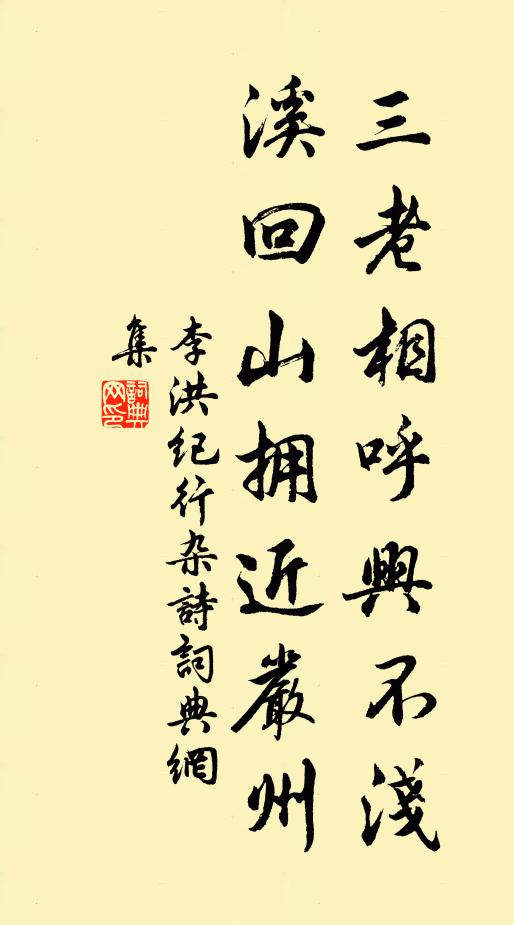 三老相呼興不淺
溪回山拥近嚴州
李洪纪行杂詩詞典網
集
詞典
网印